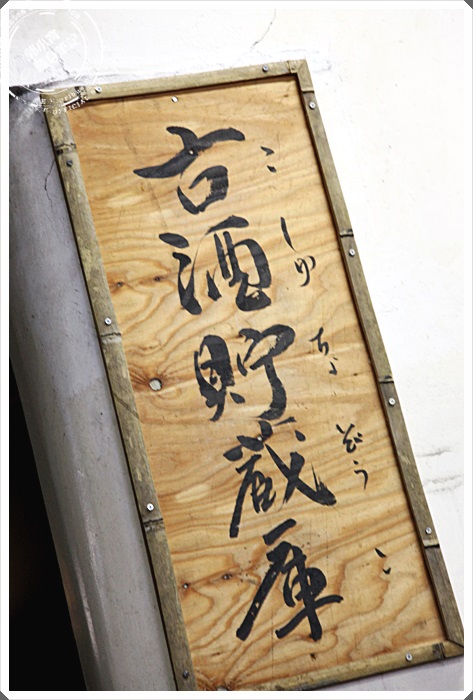 古酒貯蔵庫
こしゅちょぞうこ